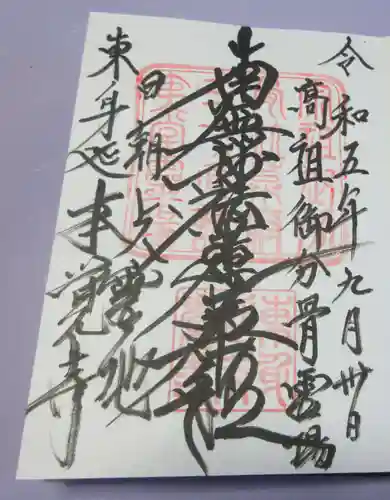 令和五年九月卅日
高祖御分骨霊場
南無妙法蓮華経
日朝上人霊地
東身延本覚寺